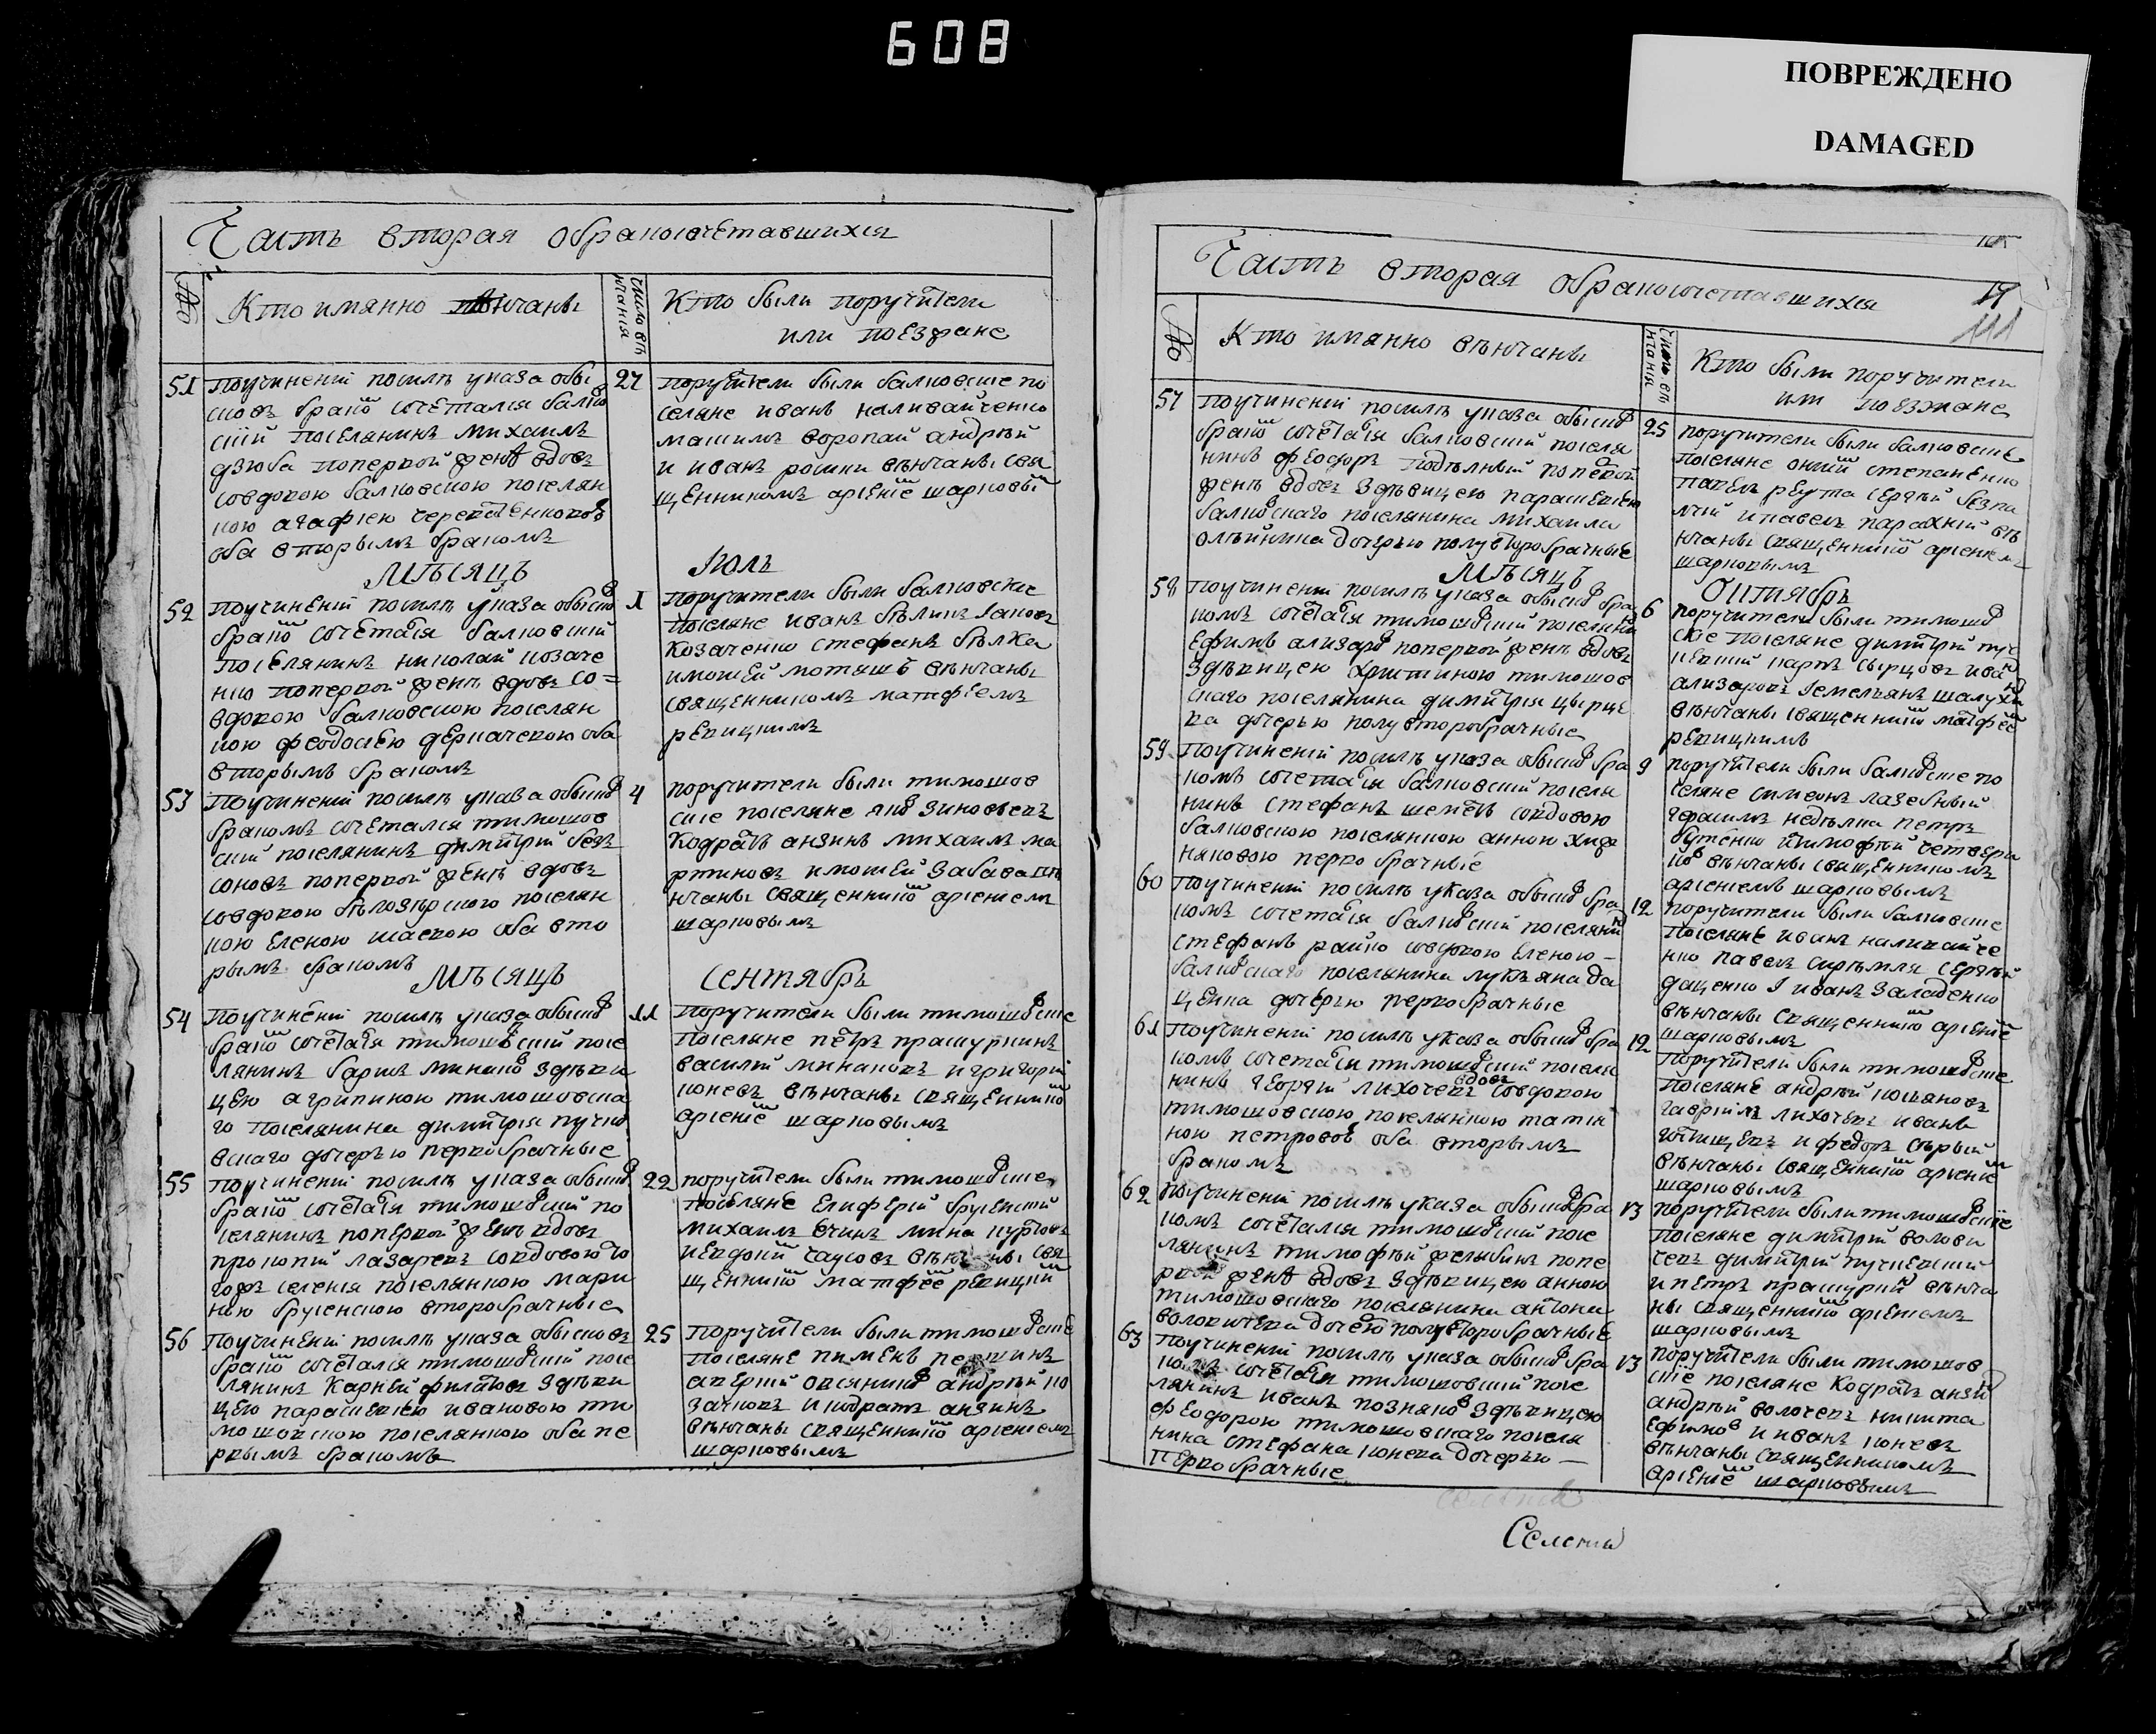 608
ПОВРЕЖДЕНО
DAMAGED
Часть вторая обракосочетавшихся
№
Кто имянно вѣнчаны
Число вѣнчания
Кто были поручители
или поезжане
51
поучинении посилѣ указа обы
сковъ брако сочетался балко
сkiй поселянинъ михаилъ
дзюба поперкой женѣ вдовъ
совдовою балковскою поселян
кою агафиею
оба вторымъ бракомъ
27
поручители были балковские по
селяне иванъ наливайченко
максимъ воропай андрѣй
и иванъ рошки вѣнчаны свя
щенникомъ арсение шарковы
мѣсяцъ
июль
52
поучинении посилѣ указа обыско
брако сочетася балковский
поселянинъ николай козаче
нко поперкой женѣ вдовъ со=
вдовою балковскою поселян
кою феодосиею деркачевою оба
вторымъ бракомъ
1
поручители были балковские
поселяне иванъ бѣлика
козаченко стефанъ бѣлка
имокей мотяшъ вѣнчаны
священникомъ матфеемъ
рекицкимъ
53
поучинении посилѣ указа обыско
бракомъ сочетался тимошов
ский поселянинъ димитрий безъ
соновъ поперкой женѣ вдовъ
совдовою бѣлозѣрскою поселян
кою еленою шаевою оба вто
рымъ бракомъ
4
поручители были тимошов
ские поселяне яко зиновьевъ
кодратъ анзинъ михаилъ ма
ртиновъ имокей забава вѣ
нчаны священнико арсениемъ
шарковымъ
мѣсяцъ
сентябрь
54
поучинении посилѣ указа обыско
брако сочетася тимошовский посе
лянинъ барисъ минако здѣви
цею агрипиною тимошовска
го поселянина димитрия пучко
вскаго дочерью первобрачные
11
поручители были тимошовские
поселяне петръ прашуркинъ
василий минаковъ игригорий
коневъ вѣнчаны священнико
арсение шарковымъ
55
поучинении посилѣ указа обыско
брако сочетася тимошовский по
селянинъ поперкой женѣ вдовъ
прокопий лазаревъ совдовою то
гожъ селения поселянкою мари
ною брусенскою второбрачные
22
поручители были тимошовские
поселяне елиферий брусенский
михаилъ инъ мина куртовъ
иевдоки часовъ вѣнчаны свя
щеннико матфее рекицки
56
поучинении посилѣ указа обысковъ
брако сочетался тимошовский посе
лянинъ карней филатовъ здѣви
цею параскевиею ивановою ти
мошовскою поселянкою оба пе
рвымъ бракомъ
25
поручители были тимошовские
поселяне пименъ першинъ
аверкий оксянико андрѣй ко
зачковъ икодратъ анзинъ
вѣнчаны священнико арсениемъ
шарковымъ
Часть вторая обракосочетавшихся
111
№
Кто имянно вѣнчаны
Число вѣнчания
Кто были поручители
или поезжане
57
поучинении посилѣ указа обыско
брако сочетася балковский поселя
нинъ феодоръ подпѣлный поперкой
женѣ вдовъ здѣвицею параскевиею
балковскаго поселянина михаила
олѣйника дочерью полувторобрачные
25
поручители были балковские
поселяне они степаненко
павелъ реута сергѣй безпа
лий ипавелъ парахний вѣ
нчаны священнико арсение
шарковымъ
мѣсяцъ
октябрь
58
поучинении посилѣ указа обыско бра
комъ сочетася тимошовский поселяни
ефимъ ализаръ поперкой женѣ вдовъ
здѣвицею христиною тимошов
скаго поселянина димитрия цырце
ва дочерью полувторобрачные
6
поручители были тимошо
ские поселяне димитрий пуч
ковский карпъ сырцовъ ива
ализаровъ иемельянъ шалухи
вѣнчаны священнико матфее
рекицкимъ
59
поучинении посилѣ указа обыско бра
комъ сочетася балковский поселя
нинъ стефанъ шеметъ совдовою
балковскою поселянкою анною хиж
няковою первобрачные
9
поручители были балковские по
селяне симеонъ лазебный
герасимъ недѣлка петръ
бутенко итимофѣй четвери
ко вѣнчаны священникомъ
арсениемъ шарковымъ
60
поучинении посилѣ указа обыско бра
комъ сочетася балковский поселяни
стефанъ райко совдовою еленою
балковскаго поселянина лукьяна да
ценка дочерью первобрачные
12
поручители были балковские
поселяне иванъ наливайче
нко павелъ сергѣй
даценко и иванъ заладенко
вѣнчаны священнико арсение
шарковымъ
61
поучинении посилѣ указа обыско бра
комъ сочетася тимошовский поселя
нинъ георгий лихочевъ вдовъ совдовою
тимошовскою поселянкою татия
ною петровою оба вторымъ
бракомъ
12
поручители были тимошовские
поселяне андрѣй косьяновъ
гавриилъ лихочевъ иванъ
готищевъ ифедоръ сѣрый
вѣнчаны священнико арсение
шарковымъ
62
поучинении посилѣ указа обыско бра
комъ сочетался тимошовский посе
лянинъ тимофѣй желябинъ попе
ркой женѣ вдовъ здѣвицею анною
тимошовскаго поселянина антона
волокитева дочерю полувторобрачные
13
поручители были тимошовские
поселяне димитрий волови
чевъ димитрий пучковский
ипетръ прашурки вѣнча
ны священнико арсениемъ
шарковымъ
63
поучинении посилѣ указа обыско бра
комъ сочетася тимошовский посе
лянинъ иванъ позняко здѣвицею
феодорою тимошовскаго поселя
нина стефана конева дочерью
первобрачные
13
поручители были тимошов
ские поселяне кодратъ анзи
андрѣй волочевъ никита
ефимо и иванъ коневъ
вѣнчаны священникомъ
арсение шарковымъ
Селения